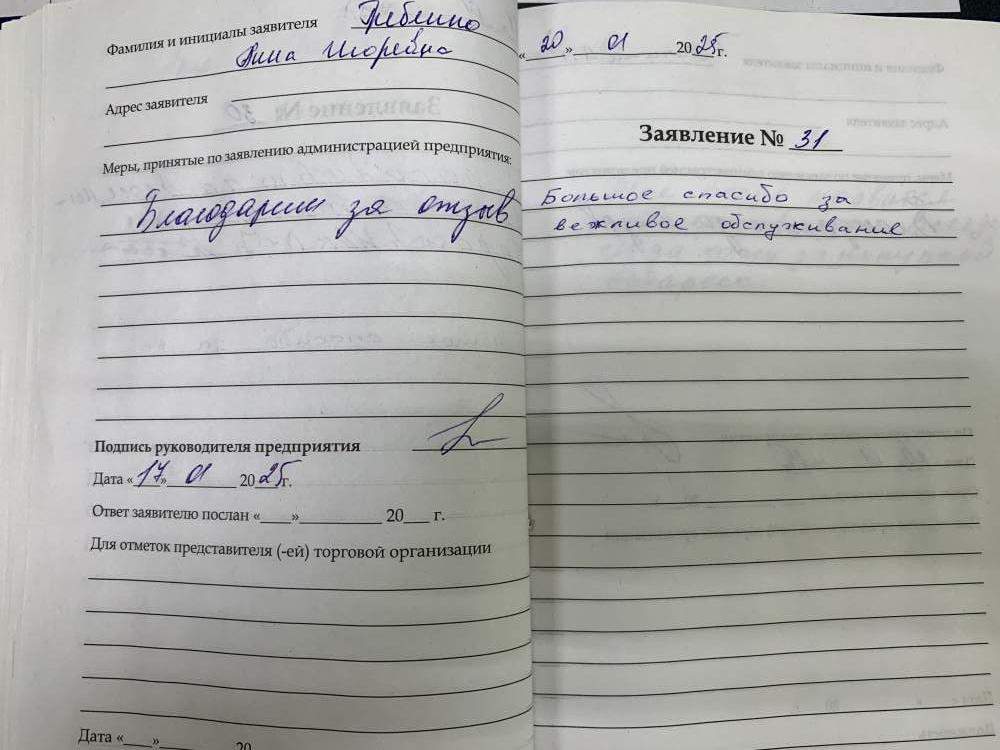 Фамилия и инициалы заявителя
Анна Игоревна
Адрес заявителя
Меры, принятые по заявлению администрацией предприятия:
Благодарим за отзыв
Подпись руководителя предприятия
Дата «17» 01 2025г.
Ответ заявителю послан «___»_________ 20___ г.
Для отметок представителя (-ей) торговой организации
Дата «___»________ 20
«20» 01 2025г.
Заявление № 31
Большое спасибо за
вежливое обслуживание